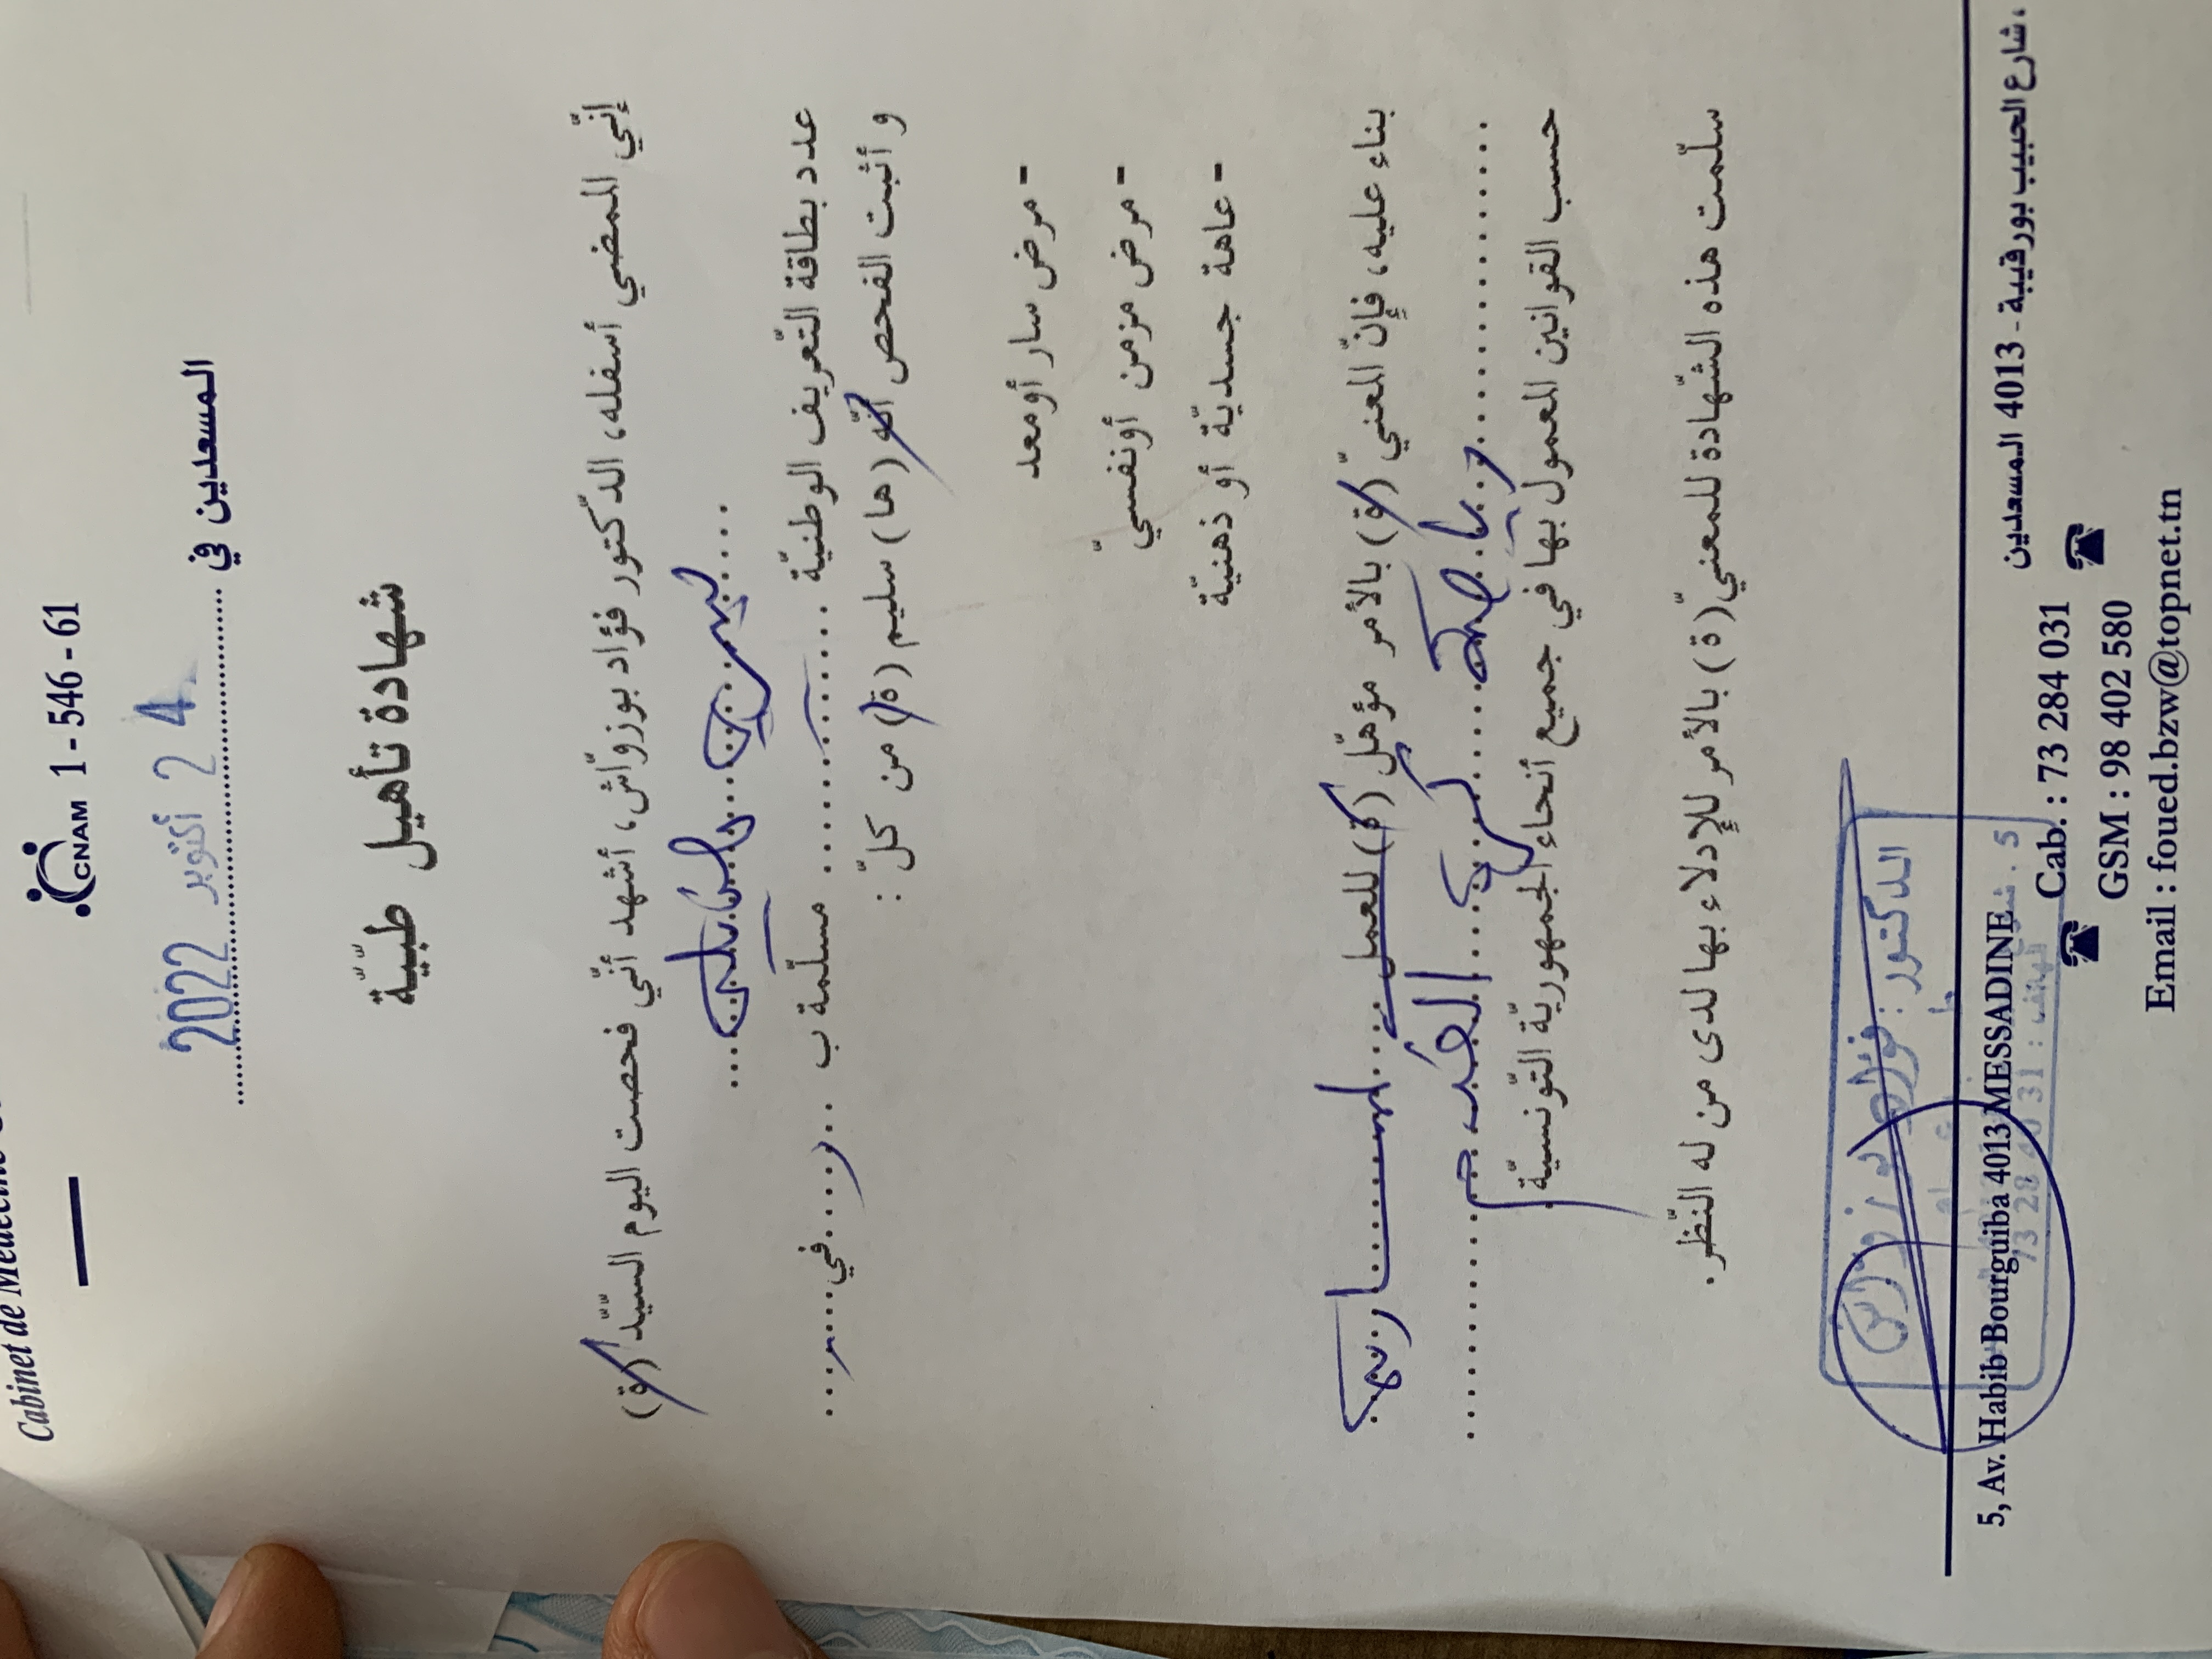 Cabinet de Médecine
CNAM 1 - 546 - 61
المسعدين في 2 4 أكتوبر 2022
شهادة تأهيل طبيّة
إنّي الممضي أسفله، الدكتور فؤاد بوزوّاش، أشهد أنّي فحصت اليوم السيّد (ة)
عدد بطاقة التّعريف الوطنيّة ............ مسلّمة ب ........ في ........
و أثبت الفحص أنّه (ها) سليم (ة) من كلّ :
- مرض سار أو معد
- مرض مزمن أو نفسيّ
- عاهة جسديّة أو ذهنيّة
بناء عليه، فإنّ المعنيّ (ة) بالأمر مؤهّل (ة) للعمل
كرة القدم
حسب القوانين المعمول بها في جميع أنحاء الجمهوريّة التّونسيّة.
سلّمت هذه الشّهادة للمعنيّ (ة) بالأمر للإدلاء بها لدى من له النّظر.
الدكتور : فؤاد بوزواش
5, Av. Habib Bourguiba 4013 MESSADINE
شارع الحبيب بورقيبة - 4013 المسعدين
Cab. : 73 284 031
GSM : 98 402 580
Email : foued.bzw@topnet.tn